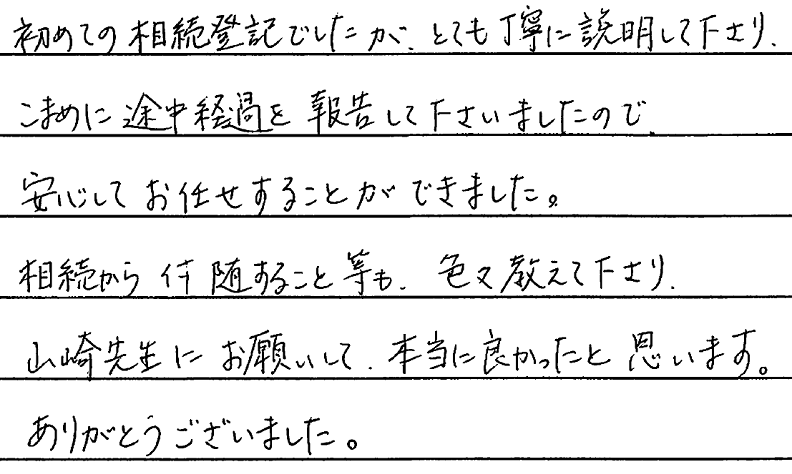 初めての相続登記でしたが、とても丁寧に説明して下さり、
こまめに途中経過を報告して下さいましたので、
安心してお任せすることができました。
相続から付随すること等も、色々教えて下さり、
山崎先生にお願いして、本当に良かったと思います。
ありがとうございました。